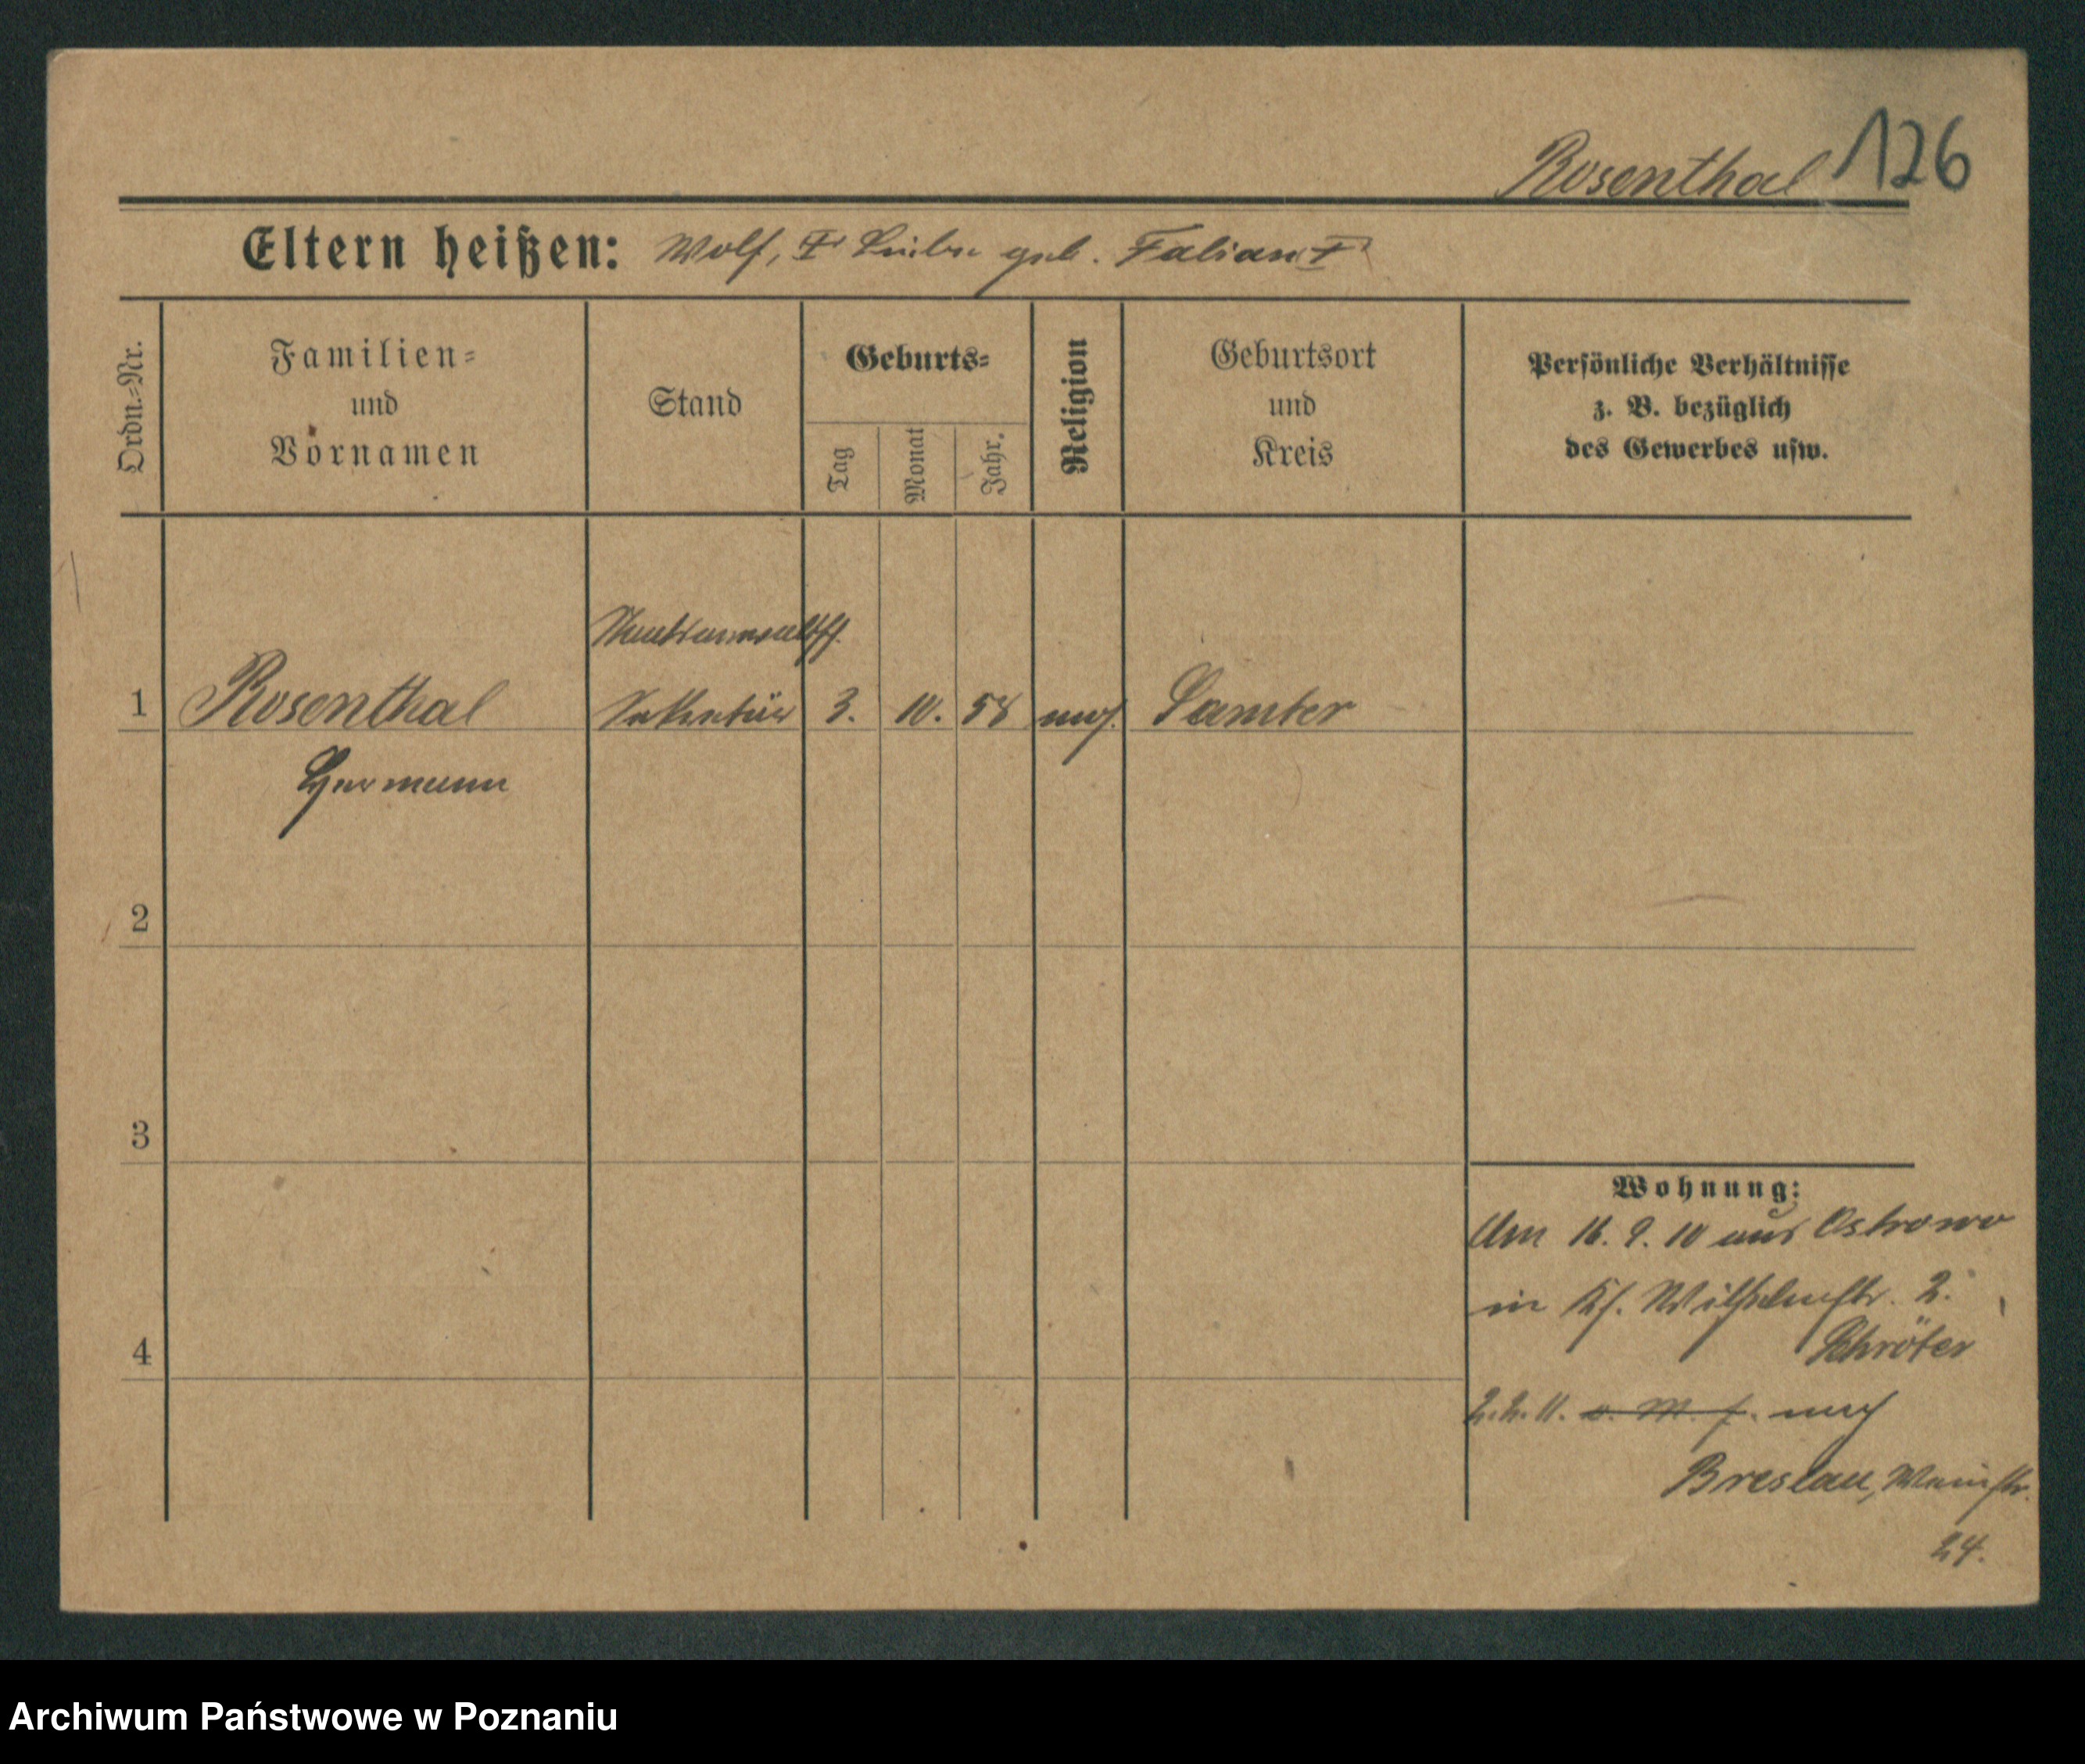 Rosenthal 126
Eltern heißen: Wolf, geb. Falian
Ordn.=Nr.
Familien=
und
Vornamen
Stand
Geburts=
Tag
Monat
Jahr.
Religion
Geburtsort
und
Kreis
Persönliche Verhältnisse
z. B. bezüglich
des Gewerbes usw.
1 Rosenthal Sekretär 3. 10. 58 mos. Samter
Hermann
2
3
4
Wohnung:
Am 16. 9. 10 aus Ostrowo
in Wilhelmstr. 2.
Schröter
2.2.11. nach
Breslau,
24.
Archiwum Państwowe w Poznaniu